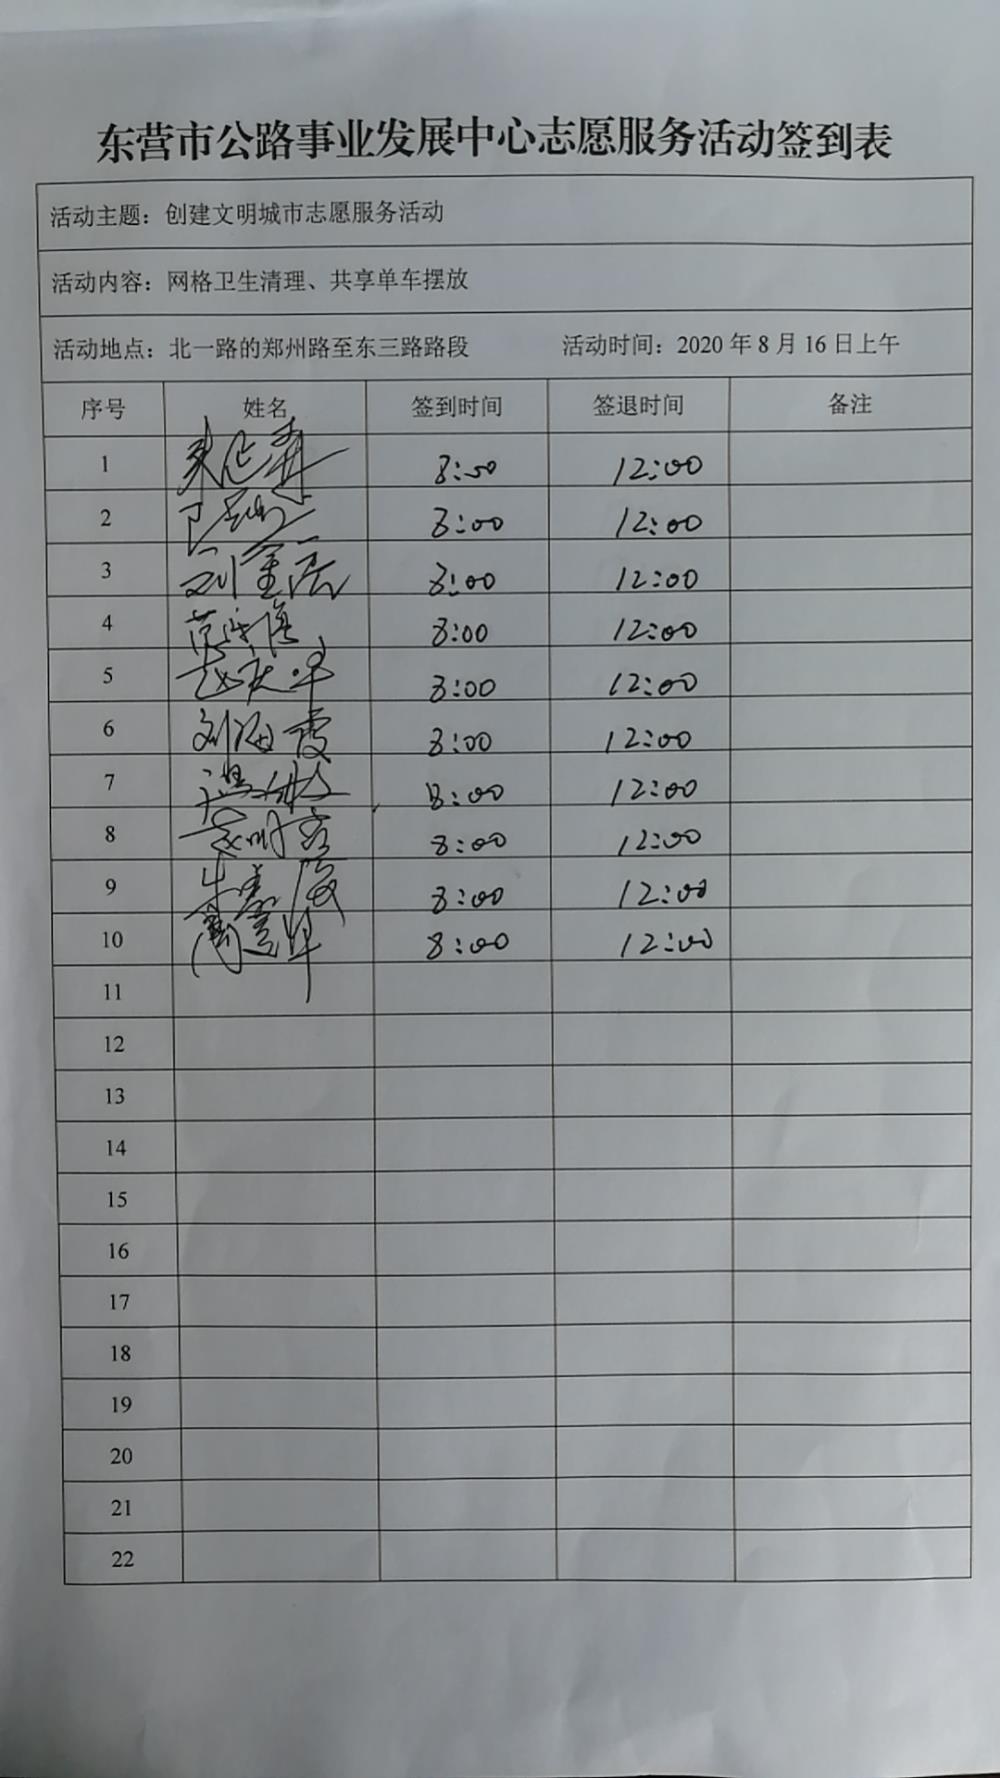 东营市公路事业发展中心志愿服务活动签到表
活动主题：创建文明城市志愿服务活动
活动内容：网格卫生清理、共享单车摆放
活动地点：北一路的郑州路至东三路路段 活动时间：2020年8月16日上午
序号 姓名 签到时间 签退时间 备注
1 8:00 12:00
2 8:00 12:00
3 8:00 12:00
4 8:00 12:00
5 8:00 12:00
6 刘海霞 8:00 12:00
7 8:00 12:00
8 8:00 12:00
9 8:00 12:00
10 8:00 12:00
11
12
13
14
15
16
17
18
19
20
21
22